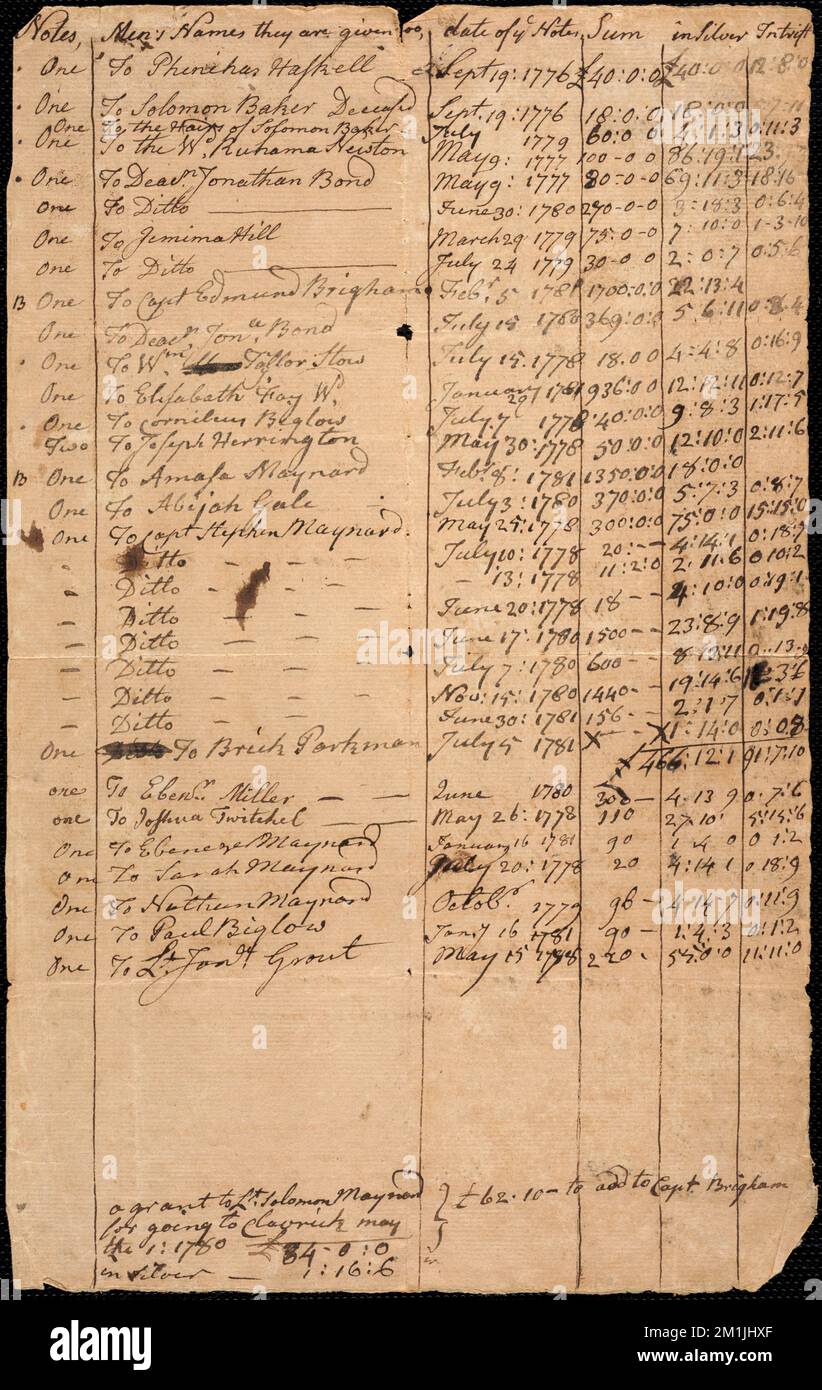 Notes, Men's Names they are given too, date of ye Notes, Sum in Silver Intrest
One To Phinehas Haskell Sept 19: 1776 £40:0:0 £40:0:0 12:8:0
One To Solomon Baker Deceasd Sept. 19: 1776 18:0:0 18:0:0
One To the Hairs of Solomon Baker July 1779 60:0:0 4:11:3 0:11:3
One To the Wd. Ruhama Newton May 9: 1777 100-0-0 86:19:1 23
One To Deacn. Jonathan Bond May 9: 1777 80-0-0 69:11:3 18:16
one To Ditto June 30: 1780 270-0-0 3:18:3 0:6:4
One To Jemima Hill March 29 1779 75:0-0 7:10:0 1-3-10
one To Ditto July 24 1779 30-0-0 2:0:7 0:5:6
B One To Capt Edmund Brigham Febr. 5 1781 1700:0:0 22:13:4
One To Deacn. Jona. Bond July 15 1780 369:0:0 5:6:11 0:8:4
One To Wm Tailor Stow July 15: 1778 18.00 4:4:8 0:16:9
One To Elisabath Fay Wd January 29 1781 936:00 12:12:11 0:12:7
One To Cornelius Biglow July 7 1778 40:0:0 9:8:3 1:17:5
Two To Joseph Herrington May 30: 1778 50:0:0 12:10:0 2:11:6
B One To Amasa Maynard Febr. 8: 1781 1350:0:0 18:0:0
One To Abijah Gale July 3: 1780 370:0:0 5:7:3 0:8:7
One To Capt Stephen Maynard May 25: 1778 300:0:0 75:0:0 15:15:0
Ditto July 10: 1778 20:-- 4:14:1 0:18:9
Ditto 13: 1778 11:2:0 2:11:6 0:10:2
Ditto June 20: 1778 18 -- 4:10:0 0:19:1
Ditto June 17: 1780 1500-- 23:8:9 1:19:8
Ditto July 7: 1780 600-- 8:18:11 0:13:9
Ditto Nov: 15: 1780 1440-- 19:14:6
Ditto June 30: 1781 156-- 2:1:7 0:1:1
One To Brick Parkman July 5 1781 X-- X1:14:0 0:0:8
£466:12:1 91:7:10
one To Ebenr. Miller June 1780 300- 4:13 9 0:7:6
one To Joshua Twitchel May 26: 1778 110 27:10: 5:15:6
One To Ebenezer Maynard January 16 1781 90 1 4 0 0 1:2
one To Sarah Maynard July 20: 1778 20 4:14:1 0 18:9
One To Nathan Maynard Octobr. 1779 96- 4-14-7 0:11:9
One To Paul Biglow Jany 16 1781 90- 1:4:3 0:1:2
One To Lt. Jont. Grout May 15 1778 220- 55:0:0 11:11:0
a grant to Lt. Solomon Maynard } £62-10- to add to Capt Brigham
for going to Claverick may
the 1: 1780 £84-0:0
in Silver - 1:16:6
alamy
Image ID: 2M1JHXF
www.alamy.com